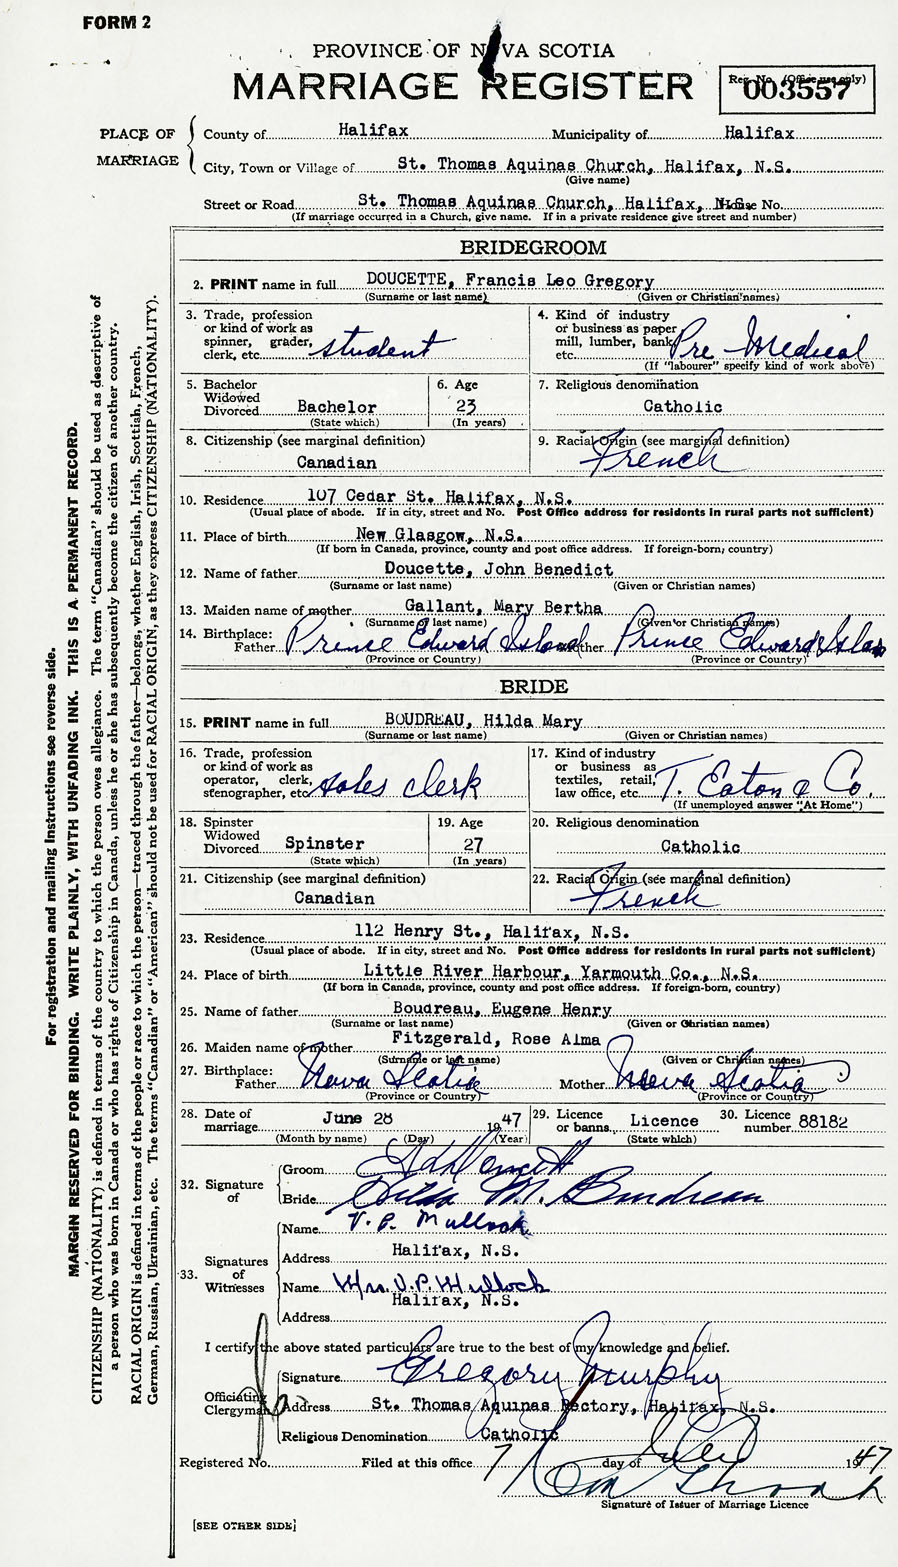 FORM 2
PROVINCE OF NOVA SCOTIA
MARRIAGE REGISTER
Reg. No. (Office use only)
003557
PLACE OF MARRIAGE
County of Halifax Municipality of Halifax
City, Town or Village of St. Thomas Aquinas Church, Halifax, N.S.
(Give name)
Street or Road St. Thomas Aquinas Church, Halifax, N.S. House No.
(If marriage occurred in a Church, give name. If in a private residence give street and number)
BRIDEGROOM
2. PRINT name in full DOUCETTE, Francis Leo Gregory
(Surname or last name) (Given or Christian names)
3. Trade, profession or kind of work as spinner, grader, clerk, etc. student
4. Kind of industry or business as paper mill, lumber, bank, etc. Pre Medical
(If "labourer" specify kind of work above)
5. Bachelor Widowed Divorced Bachelor
(State which)
6. Age 23
(In years)
7. Religious denomination
Catholic
8. Citizenship (see marginal definition)
Canadian
9. Racial Origin (see marginal definition)
French
10. Residence 107 Cedar St. Halifax, N.S.
(Usual place of abode. If in city, street and No. Post Office address for residents in rural parts not sufficient)
11. Place of birth New Glasgow, N.S.
(If born in Canada, province, county and post office address. If foreign-born, country)
12. Name of father Doucette, John Benedict
(Surname or last name) (Given or Christian names)
13. Maiden name of mother Gallant, Mary Bertha
(Surname or last name) (Given or Christian names)
14. Birthplace:
Father Prince Edward Island Mother Prince Edward Island
(Province or Country) (Province or Country)
BRIDE
15. PRINT name in full BOUDREAU, Hilda Mary
(Surname or last name) (Given or Christian names)
16. Trade, profession or kind of work as operator, clerk, stenographer, etc. sales clerk
17. Kind of industry or business as textiles, retail, law office, etc. T. Eaton & Co.
(If unemployed answer "At Home")
18. Spinster Widowed Divorced Spinster
(State which)
19. Age 27
(In years)
20. Religious denomination
Catholic
21. Citizenship (see marginal definition)
Canadian
22. Racial Origin (see marginal definition)
French
23. Residence 112 Henry St., Halifax, N.S.
(Usual place of abode. If in city, street and No. Post Office address for residents in rural parts not sufficient)
24. Place of birth Little River Harbour, Yarmouth Co., N.S.
(If born in Canada, province, county and post office address. If foreign-born, country)
25. Name of father Boudreau, Eugene Henry
(Surname or last name) (Given or Christian names)
26. Maiden name of mother Fitzgerald, Rose Alma
(Surname or last name) (Given or Christian names)
27. Birthplace:
Father Nova Scotia Mother Nova Scotia
(Province or Country) (Province or Country)
28. Date of marriage June 28 1947
(Month by name) (Day) (Year)
29. Licence or banns Licence
(State which)
30. Licence number 88182
32. Signature of
Groom
Bride Hilda M. Boudreau
33. Signatures of Witnesses
Name V. P. Mullock
Address Halifax, N.S.
Name Mrs. V. P. Mullock
Halifax, N.S.
Address
I certify the above stated particulars are true to the best of my knowledge and belief.
Officiating Clergyman
Signature Gregory Murphy
Address St. Thomas Aquinas Rectory, Halifax, N.S.
Religious Denomination Catholic
Registered No. Filed at this office 7 day of July 1947
Signature of Issuer of Marriage Licence
[SEE OTHER SIDE]
For registration and mailing instructions see reverse side.
MARGIN RESERVED FOR BINDING. WRITE PLAINLY, WITH UNFADING INK. THIS IS A PERMANENT RECORD.
CITIZENSHIP (NATIONALITY) is defined in terms of the country to which the person owes allegiance. The term "Canadian" should be used as descriptive of
a person who was born in Canada or who has rights of Citizenship in Canada, unless he or she has subsequently become the citizen of another country.
RACIAL ORIGIN is defined in terms of the people or race to which the person—traced through the father—belongs, whether English, Irish, Scottish, French,
German, Russian, Ukrainian, etc. The terms "Canadian" or "American" should not be used for RACIAL ORIGIN, as they express CITIZENSHIP (NATIONALITY).